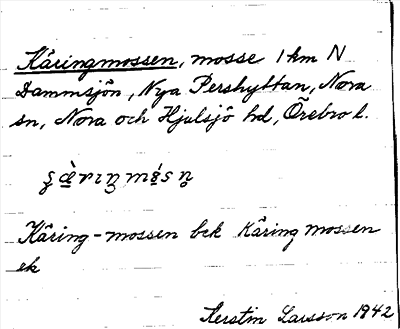 Käringmossen, mosse 1 km N
Dammsjön, Nya Pershyttan, Nora
sn, Nora och Hjulsjö hd, Örebro l.
Käring-mossen bek Käring mossen
ek
Kerstin Larsson 1942